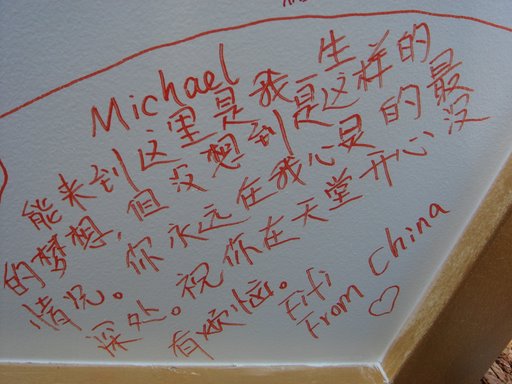 Michael
能来到这里是我一生
的梦想，但没想到是这样的
情况。你永远在我心灵的最
深处。祝你在天堂开心没
有烦恼。Eifi
From China